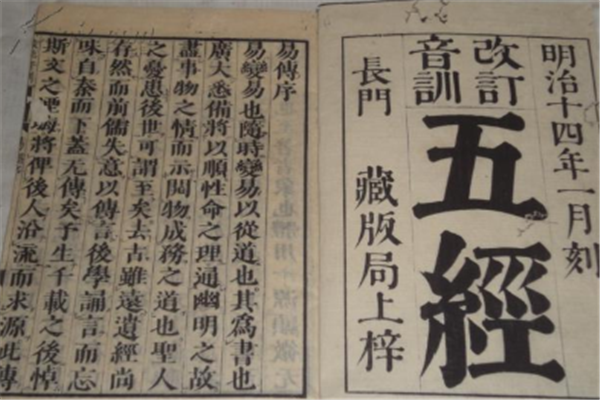 明治十四年一月刻
改訂
音訓
五經
長門 藏版局上梓
易傳序
易變易也隨時變易以從道也其爲書也
廣大悉備將以順性命之理通幽明之故
盡事物之情而示開物成務之道也聖人
之憂患後世可謂至矣去古雖遠遺經尚
存然而前儒失意以傳言後學誦言而忘
味自秦而下蓋无傳矣予生千載之後悼
斯文之湮晦將俾後人沿流而求源此傳